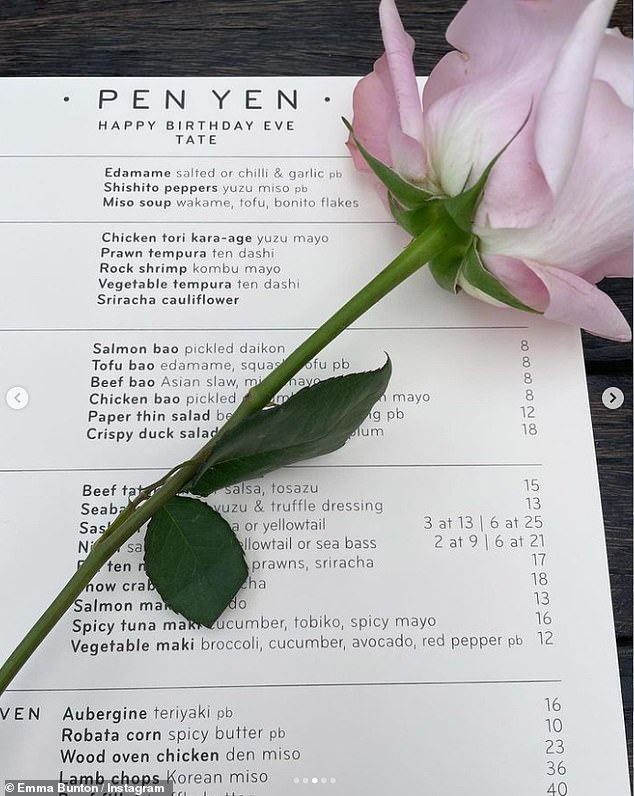 · PEN YEN ·
HAPPY BIRTHDAY EVE
TATE
Edamame salted or chilli & garlic pb
Shishito peppers yuzu miso pb
Miso soup wakame, tofu, bonito flakes
Chicken tori kara-age yuzu mayo
Prawn tempura ten dashi
Rock shrimp kombu mayo
Vegetable tempura ten dashi
Sriracha cauliflower
Salmon bao pickled daikon 8
Tofu bao edamame, squash tofu pb 8
Beef bao Asian slaw, mayo 8
Chicken bao pickled mayo 8
Paper thin salad pb 12
Crispy duck salad plum 18
Beef salsa, tosazu 15
yuzu & truffle dressing 13
or yellowtail 3 at 13 | 6 at 25
yellowtail or sea bass 2 at 9 | 6 at 21
ten prawns, sriracha 17
18
Salmon 13
Spicy tuna maki cucumber, tobiko, spicy mayo 16
Vegetable maki broccoli, cucumber, avocado, red pepper pb 12
VEN Aubergine teriyaki pb 16
Robata corn spicy butter pb 10
Wood oven chicken den miso 23
Lamb chops Korean miso 36
40
© Emma Bunton / Instagram